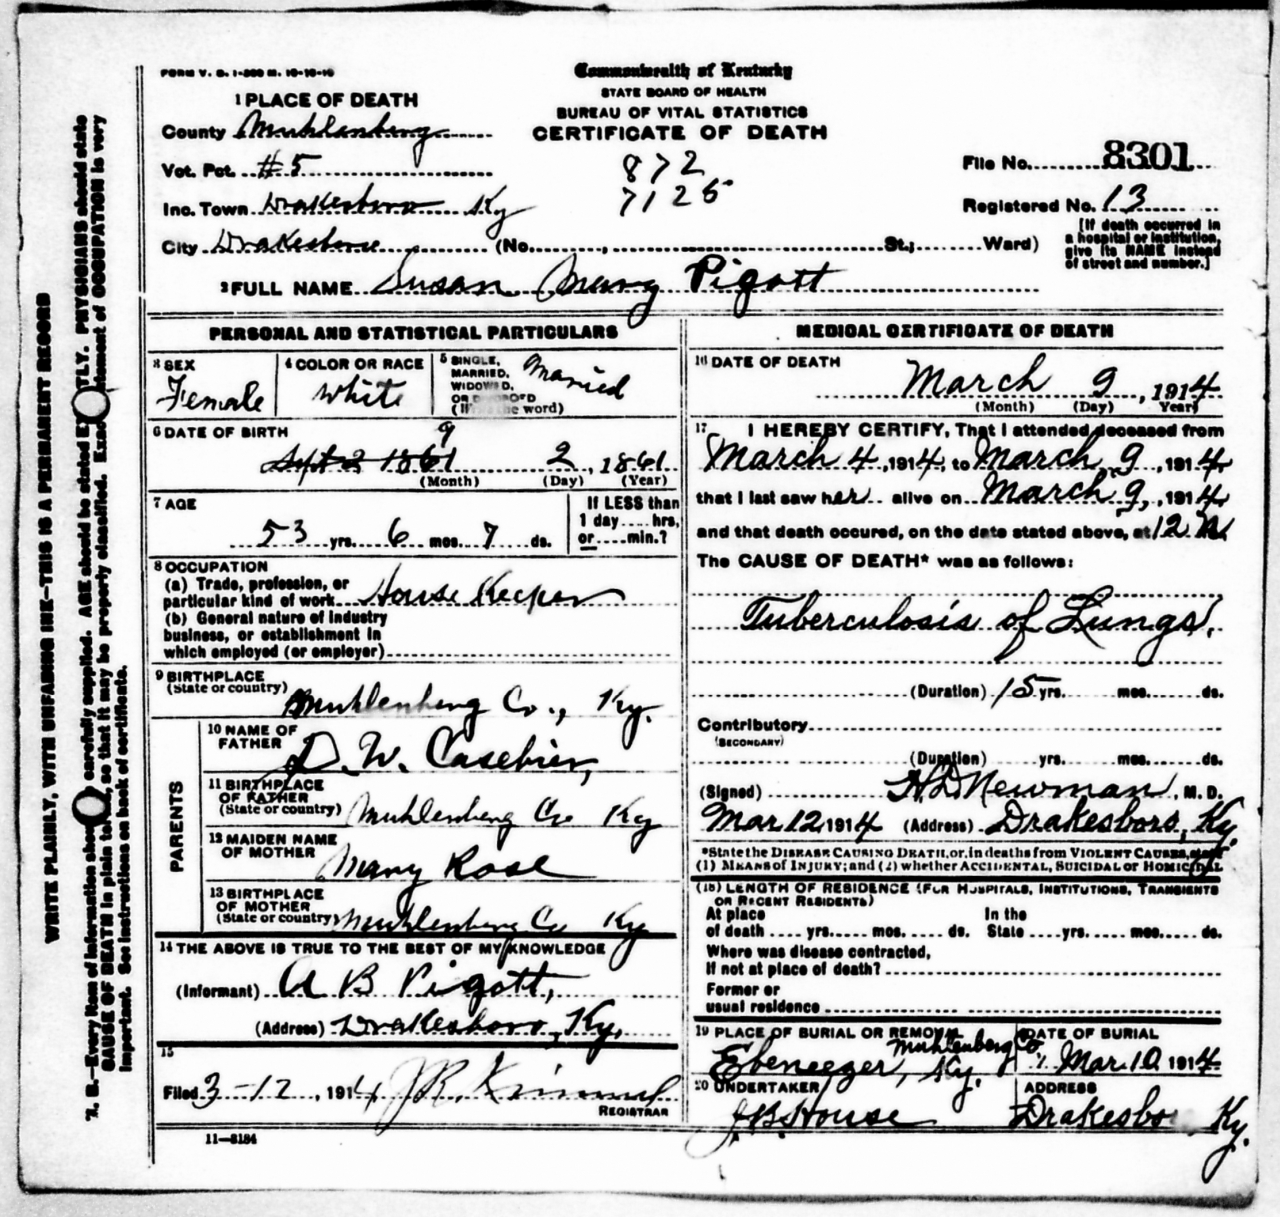 FORM V. S. 1-
Commonwealth of Kentucky
STATE BOARD OF HEALTH
BUREAU OF VITAL STATISTICS
CERTIFICATE OF DEATH
1 PLACE OF DEATH
County Muhlenberg
Vot. Pct. #5
Inc. Town Drakesboro Ky
City Drakesboro (No. , St.; Ward)
872
7125
File No. 8301
Registered No. 13
[If death occurred in
a hospital or institution,
give its NAME instead
of street and number.]
2 FULL NAME Susan Mary Pigott
PERSONAL AND STATISTICAL PARTICULARS
3 SEX
Female
4 COLOR OR RACE
White
5 SINGLE,
MARRIED,
WIDOWED,
OR DIVORCED
(Write the word)
Married
6 DATE OF BIRTH
9
Sept 2 1861 2, 1861
(Month) (Day) (Year)
7 AGE
53 yrs. 6 mos. 7 ds.
If LESS than
1 day.....hrs,
or.....min.?
8 OCCUPATION
(a) Trade, profession, or
particular kind of work House Keeper
(b) General nature of industry
business, or establishment in
which employed (or employer)
9 BIRTHPLACE
(State or country)
Muhlenberg Co., Ky.
PARENTS
10 NAME OF
FATHER
D. W. Casebier,
11 BIRTHPLACE
OF FATHER
(State or country)
Muhlenberg Co Ky
12 MAIDEN NAME
OF MOTHER
Mary Rose
13 BIRTHPLACE
OF MOTHER
(State or country)
Muhlenberg Co Ky
14 THE ABOVE IS TRUE TO THE BEST OF MY KNOWLEDGE
(Informant) A B Pigott,
(Address) Drakesboro, Ky.
15
Filed 3-12, 1914 J.R. Kimmel
REGISTRAR
11-3184
MEDICAL CERTIFICATE OF DEATH
16 DATE OF DEATH
March 9, 1914
(Month) (Day) Year
17 I HEREBY CERTIFY, That I attended deceased from
March 4, 1914, to March 9, 1914
that I last saw her alive on March 9, 1914
and that death occured, on the date stated above, at 12 M
The CAUSE OF DEATH* was as follows:
Tuberculosis of Lungs.
(Duration) 15 yrs. mos. ds.
Contributory
(SECONDARY)
(Duration) yrs. mos. ds.
(Signed) H D Newman, M. D.
Mar 12, 1914 (Address) Drakesboro, Ky.
*State the DISEASE CAUSING DEATH, or, in deaths from VIOLENT CAUSES, state
(1) MEANS of INJURY; and (2) whether ACCIDENTAL, SUICIDAL or HOMICIDAL
(18) LENGTH OF RESIDENCE (FOR HOSPITALS, INSTITUTIONS, TRANSIENTS
OR RECENT RESIDENTS)
At place In the
of death yrs. mos. ds. State yrs. mos. ds.
Where was disease contracted,
If not at place of death?
Former or
usual residence
19 PLACE OF BURIAL OR REMOVAL
Muhlenberg Co
Ebeneezer, Ky.
DATE OF BURIAL
Mar 10, 1914
20 UNDERTAKER
J.B. House
ADDRESS
Drakesboro, Ky.
WRITE PLAINLY, WITH UNFADING INK—THIS IS A PERMANENT RECORD
N. B.—Every item of information should be carefully supplied. AGE should be stated EXACTLY. PHYSICIANS should state
CAUSE OF DEATH in plain terms, so that it may be properly classified. Exact statement of OCCUPATION is very
important. See instructions on back of certificate.